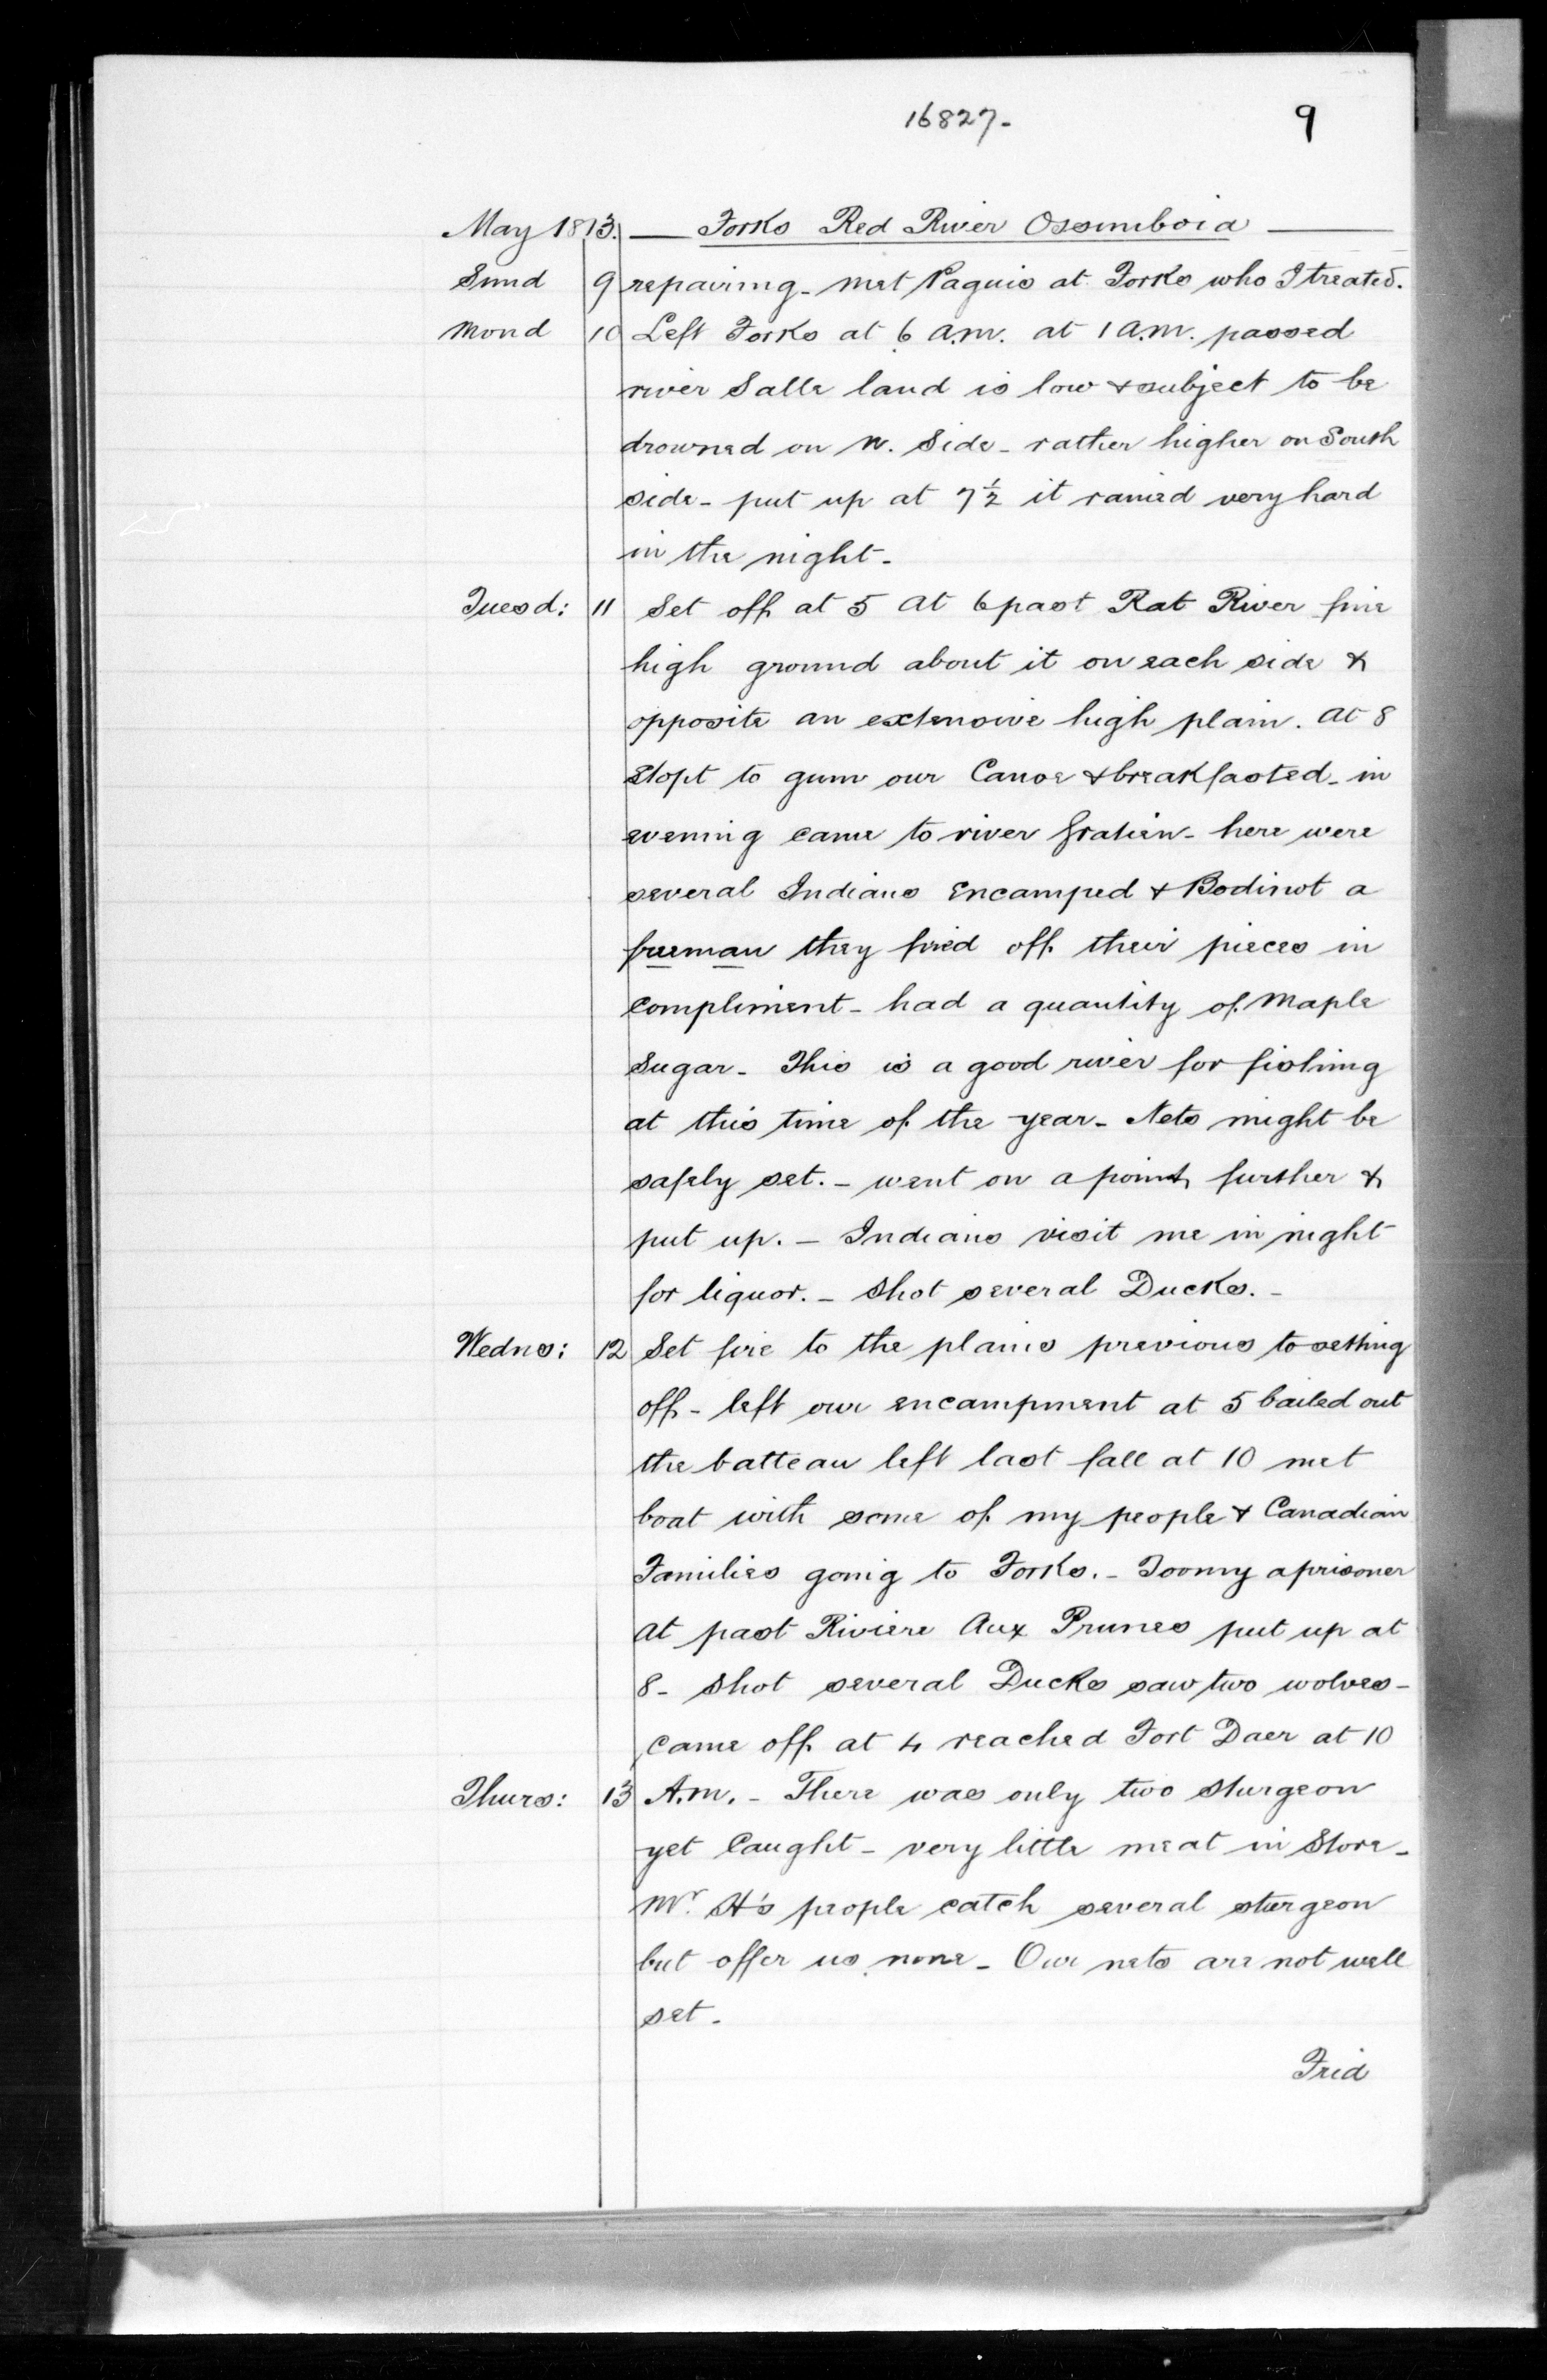 16827-
9
May 1813. — Forks Red River Ossiniboia —
Sund 9 repairing - met Paguis at Forks who I treated.
Mond 10 Left Forks at 6 a.m. at 1 a.m. passed
river Salle land is low & subject to be
drowned on N. Side - rather higher on South
side - put up at 7½ it rained very hard
in the night -
Tuesd: 11 Set off at 5 at 6 past Rat River fine
high ground about it on each side &
opposite an extensive high plain. at 8
Stopt to gum our Canoe & breakfasted - in
evening came to river Gratien - here were
several Indians Encamped & Bodinot a
freeman they fired off their pieces in
compliment - had a quantity of Maple
Sugar - This is a good river for fishing
at this time of the year - Nets might be
safely set. - went on a point further &
put up. - Indians visit me in night
for liquor. - Shot several Ducks. -
Wednes: 12 Set fire to the plains previous to setting
off - left our encampment at 5 bailed out
the batteau left last fall at 10 met
boat with some of my people & Canadian
Families going to Forks. - Toomy a prisoner
at past Riviere Aux Prunes put up at
8 - Shot several Ducks saw two wolves -
came off at 4 reached Fort Daer at 10
Thurs: 13 A.m. - There was only two Sturgeon
yet Caught - very little meat in Store -
Mr. H's people catch several sturgeon
but offer us none - Our nets are not well
set -
Frid